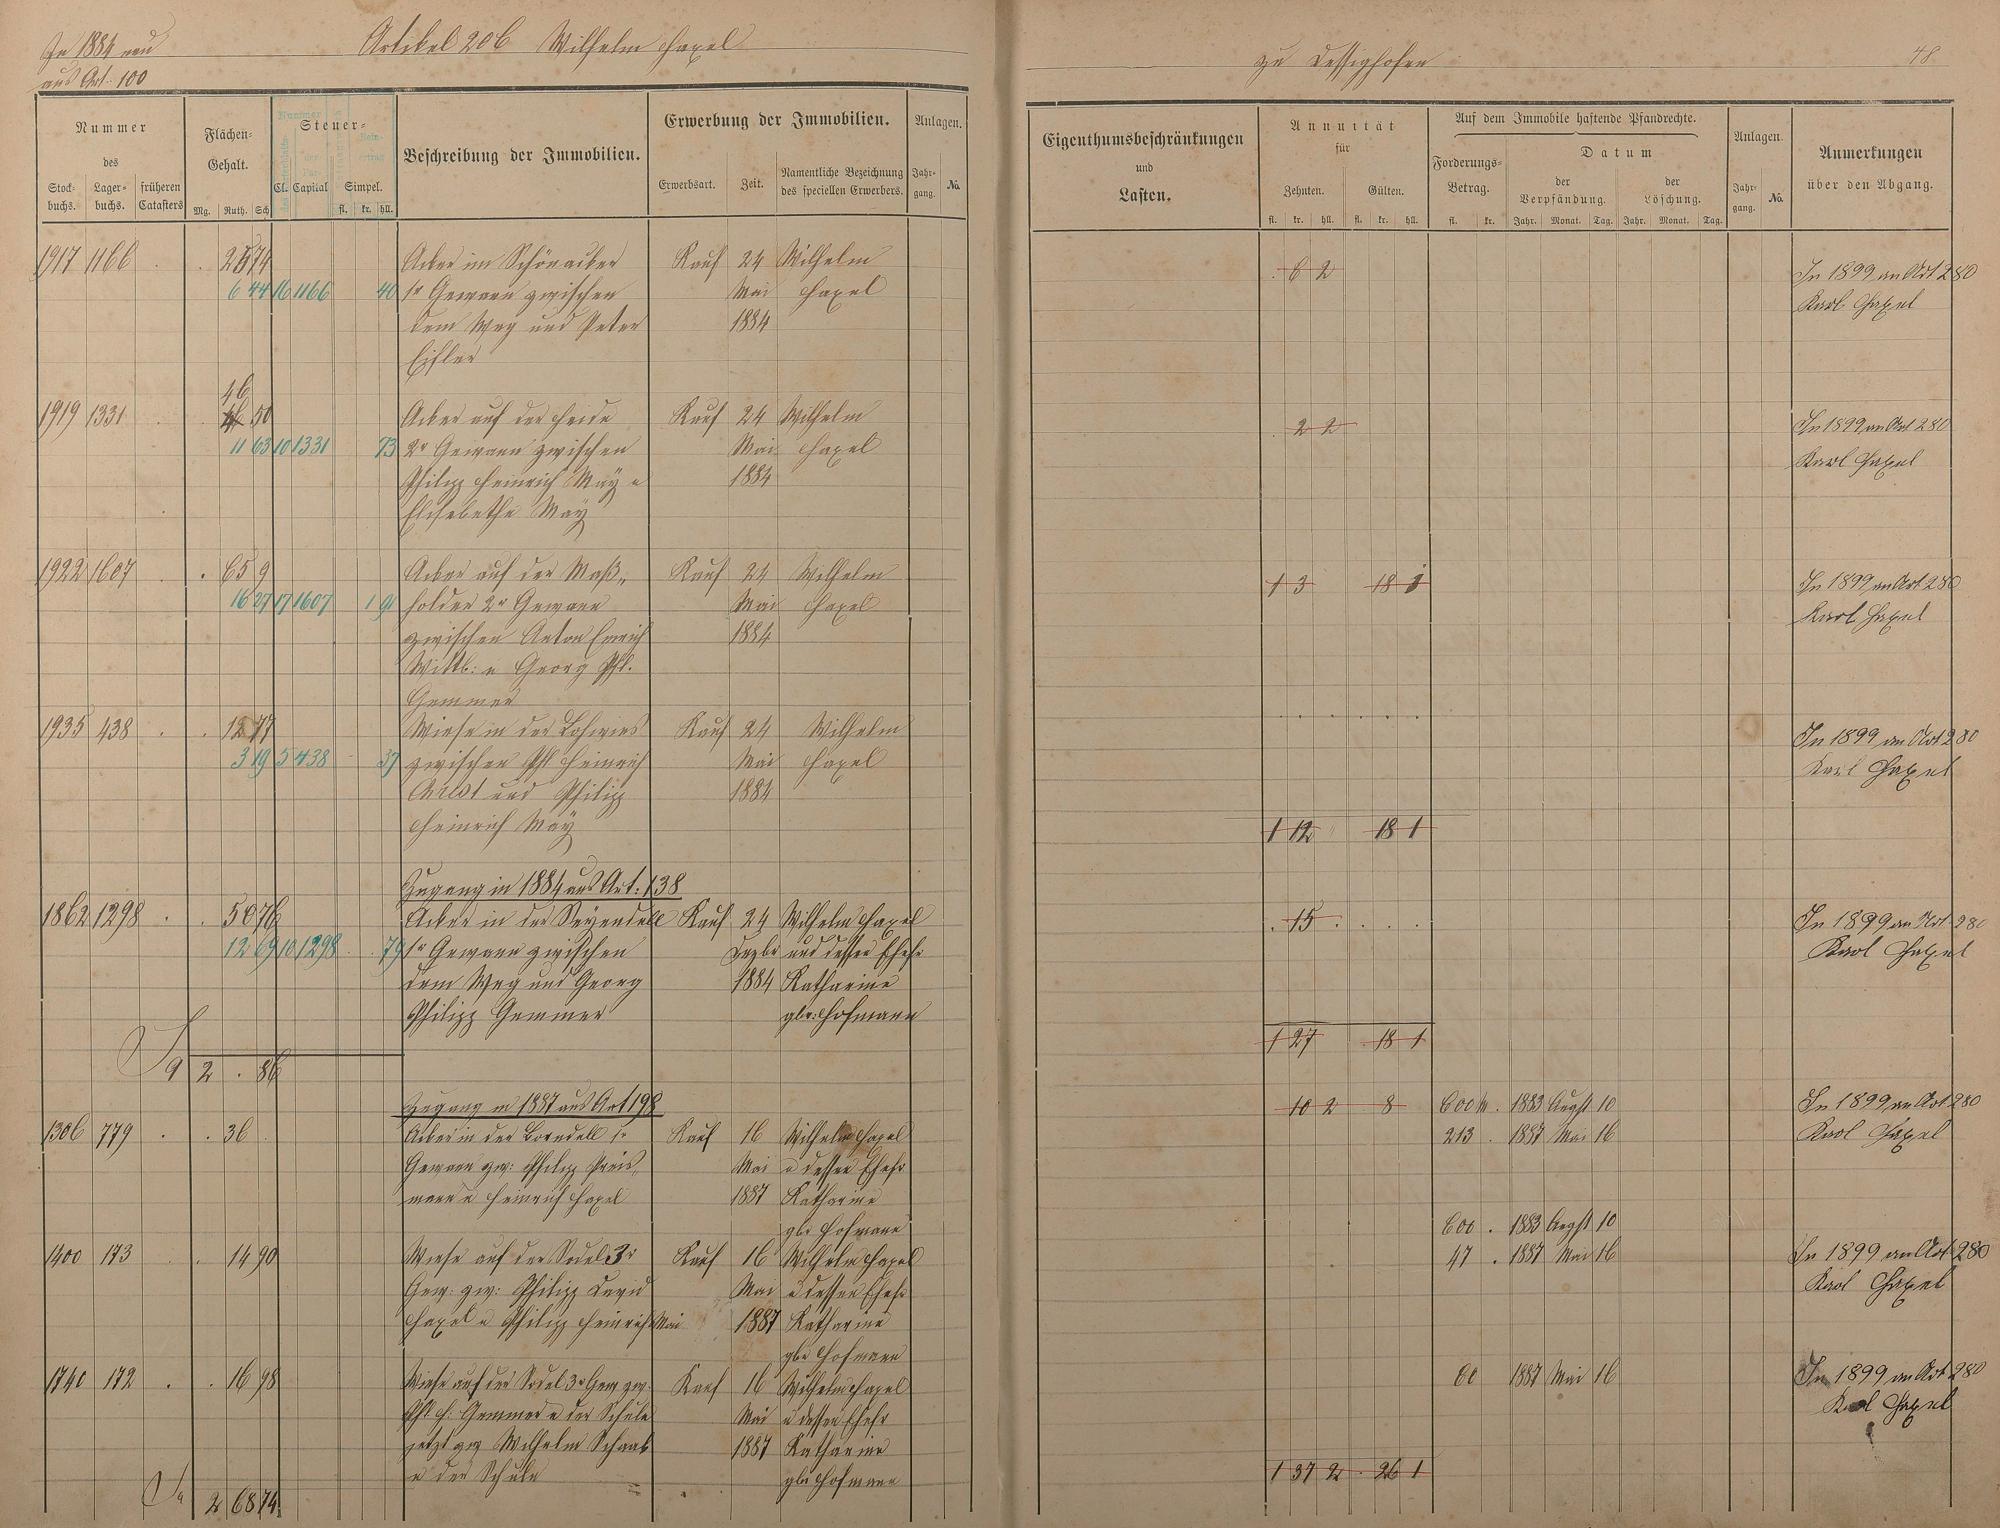 In 1884 neu
aus Art. 100
Artikel 206 Wilhelm Hasel
zu Dessighofen
48
Nummer
des
Stock-
buchs.
Lager-
buchs.
früheren
Catasters
Flächen-
Gehalt.
Mg. Ruth. Sch
Steuer-
Cl. Capital
Simpel.
fl. kr. hll.
Beschreibung der Immobilien.
Erwerbung der Immobilien.
Erwerbsart.
Zeit.
Namentliche Bezeichnung
des speciellen Erwerbers.
Anlagen.
Jahr-
gang.
No.
Eigenthumsbeschränkungen
und
Lasten.
Annuität
für
Zehnten. Gülten.
fl. kr. hll. fl. kr. hll.
Auf dem Immobile haftende Pfandrechte.
Forderungs-
Betrag.
fl. kr.
Datum
der
Verpfändung.
Jahr. Monat. Tag.
der
Löschung.
Jahr. Monat. Tag.
Anlagen.
Jahr-
gang.
No.
Anmerkungen
über den Abgang.
1917 1166 . . 25 74 Acker im Schönacker Kauf 24 Wilhelm . 6 2 In 1899 an Art 280
6 44 16 1166 40 1r Gewann zwischen Mai Hasel Karl Hasel
dem Weg und Peter 1884
Eisler
46
1919 1331 . . 50 Acker auf der Heide Kauf 24 Wilhelm . 2 2 In 1899 an Art 280
11 63 10 1331 73 2r Gewann zwischen Mai Hasel Karl Hasel
Philipp Heinrich May u 1884
Elisabethe May
1922 1607 . . 65 9 Acker auf der Maß- Kauf 24 Wilhelm 1 3 18 1 In 1899 an Art 280
16 27 17 1607 1 91 holder 2r Gewann Mai Hasel Karl Hasel
zwischen Anton Emrich 1884
Wittb: u Georg Phl.
Gemmer
1935 438 . . 12 77 Wiese in der Lohwies Kauf 24 Wilhelm . . . . . . In 1899 an Art 280
3 19 5 438 37 zwischen Phl Heinrich Mai Hasel Karl Hasel
und Philipp 1884
Heinrich May
1 12 " 18 1
Zugang in 1884 aus Art: 138
1862 1298 . . 50 76 Acker in der Kauf 24 Wilhelm Hasel . 15 . . . . In 1899 an Art 280
12 69 10 1298 . . 79 1r Gewann zwischen Dezbr und dessen Ehefr Karl Hasel
dem Weg und Georg 1884 Katharine
Philipp Gemmer gbr: Hofmann
1 27 . 18 1
Sa 2 . 86
Zugang in 1887 aus Art 198
1306 779 . . 36 . Acker in der 1r Kauf 16 Wilhelm Hasel . 10 2 . 8 600 M. 1883 Augst 10 In 1899 an Art 280
Gewann zw: Philipp Preis- Mai u dessen Ehefr 213 . 1887 Mai 16 Karl Hasel
mann u Heinrich Hasel 1887 Katharine
gbr Hofmann
1400 173 . . 14 90 Wiese auf der Sodel 3r Kauf 16 Wilhelm Hasel 600 . 1883 Augst 10 In 1899 an Art 280
Gew: zw: Philipp David Mai u dessen Ehefr 47 . 1887 Mai 16 Karl Hasel
Hasel u Philipp Heinrich Mai 1887 Katharine
gbr Hofmann
1740 172 . . 16 98 Wiese auf der Sodel 3r Gew zw. Kauf 16 Wilhelm Hasel 60 1887 Mai 16 In 1899 an Art 280
Phl H: Gemmer u der Schule Mai u dessen Ehefr Karl Hasel
jetzt zw Wilhelm Schaab 1887 Katharine
u der Schule gbr Hofmann
Sa 2 68 74
1 37 2 . 26 1